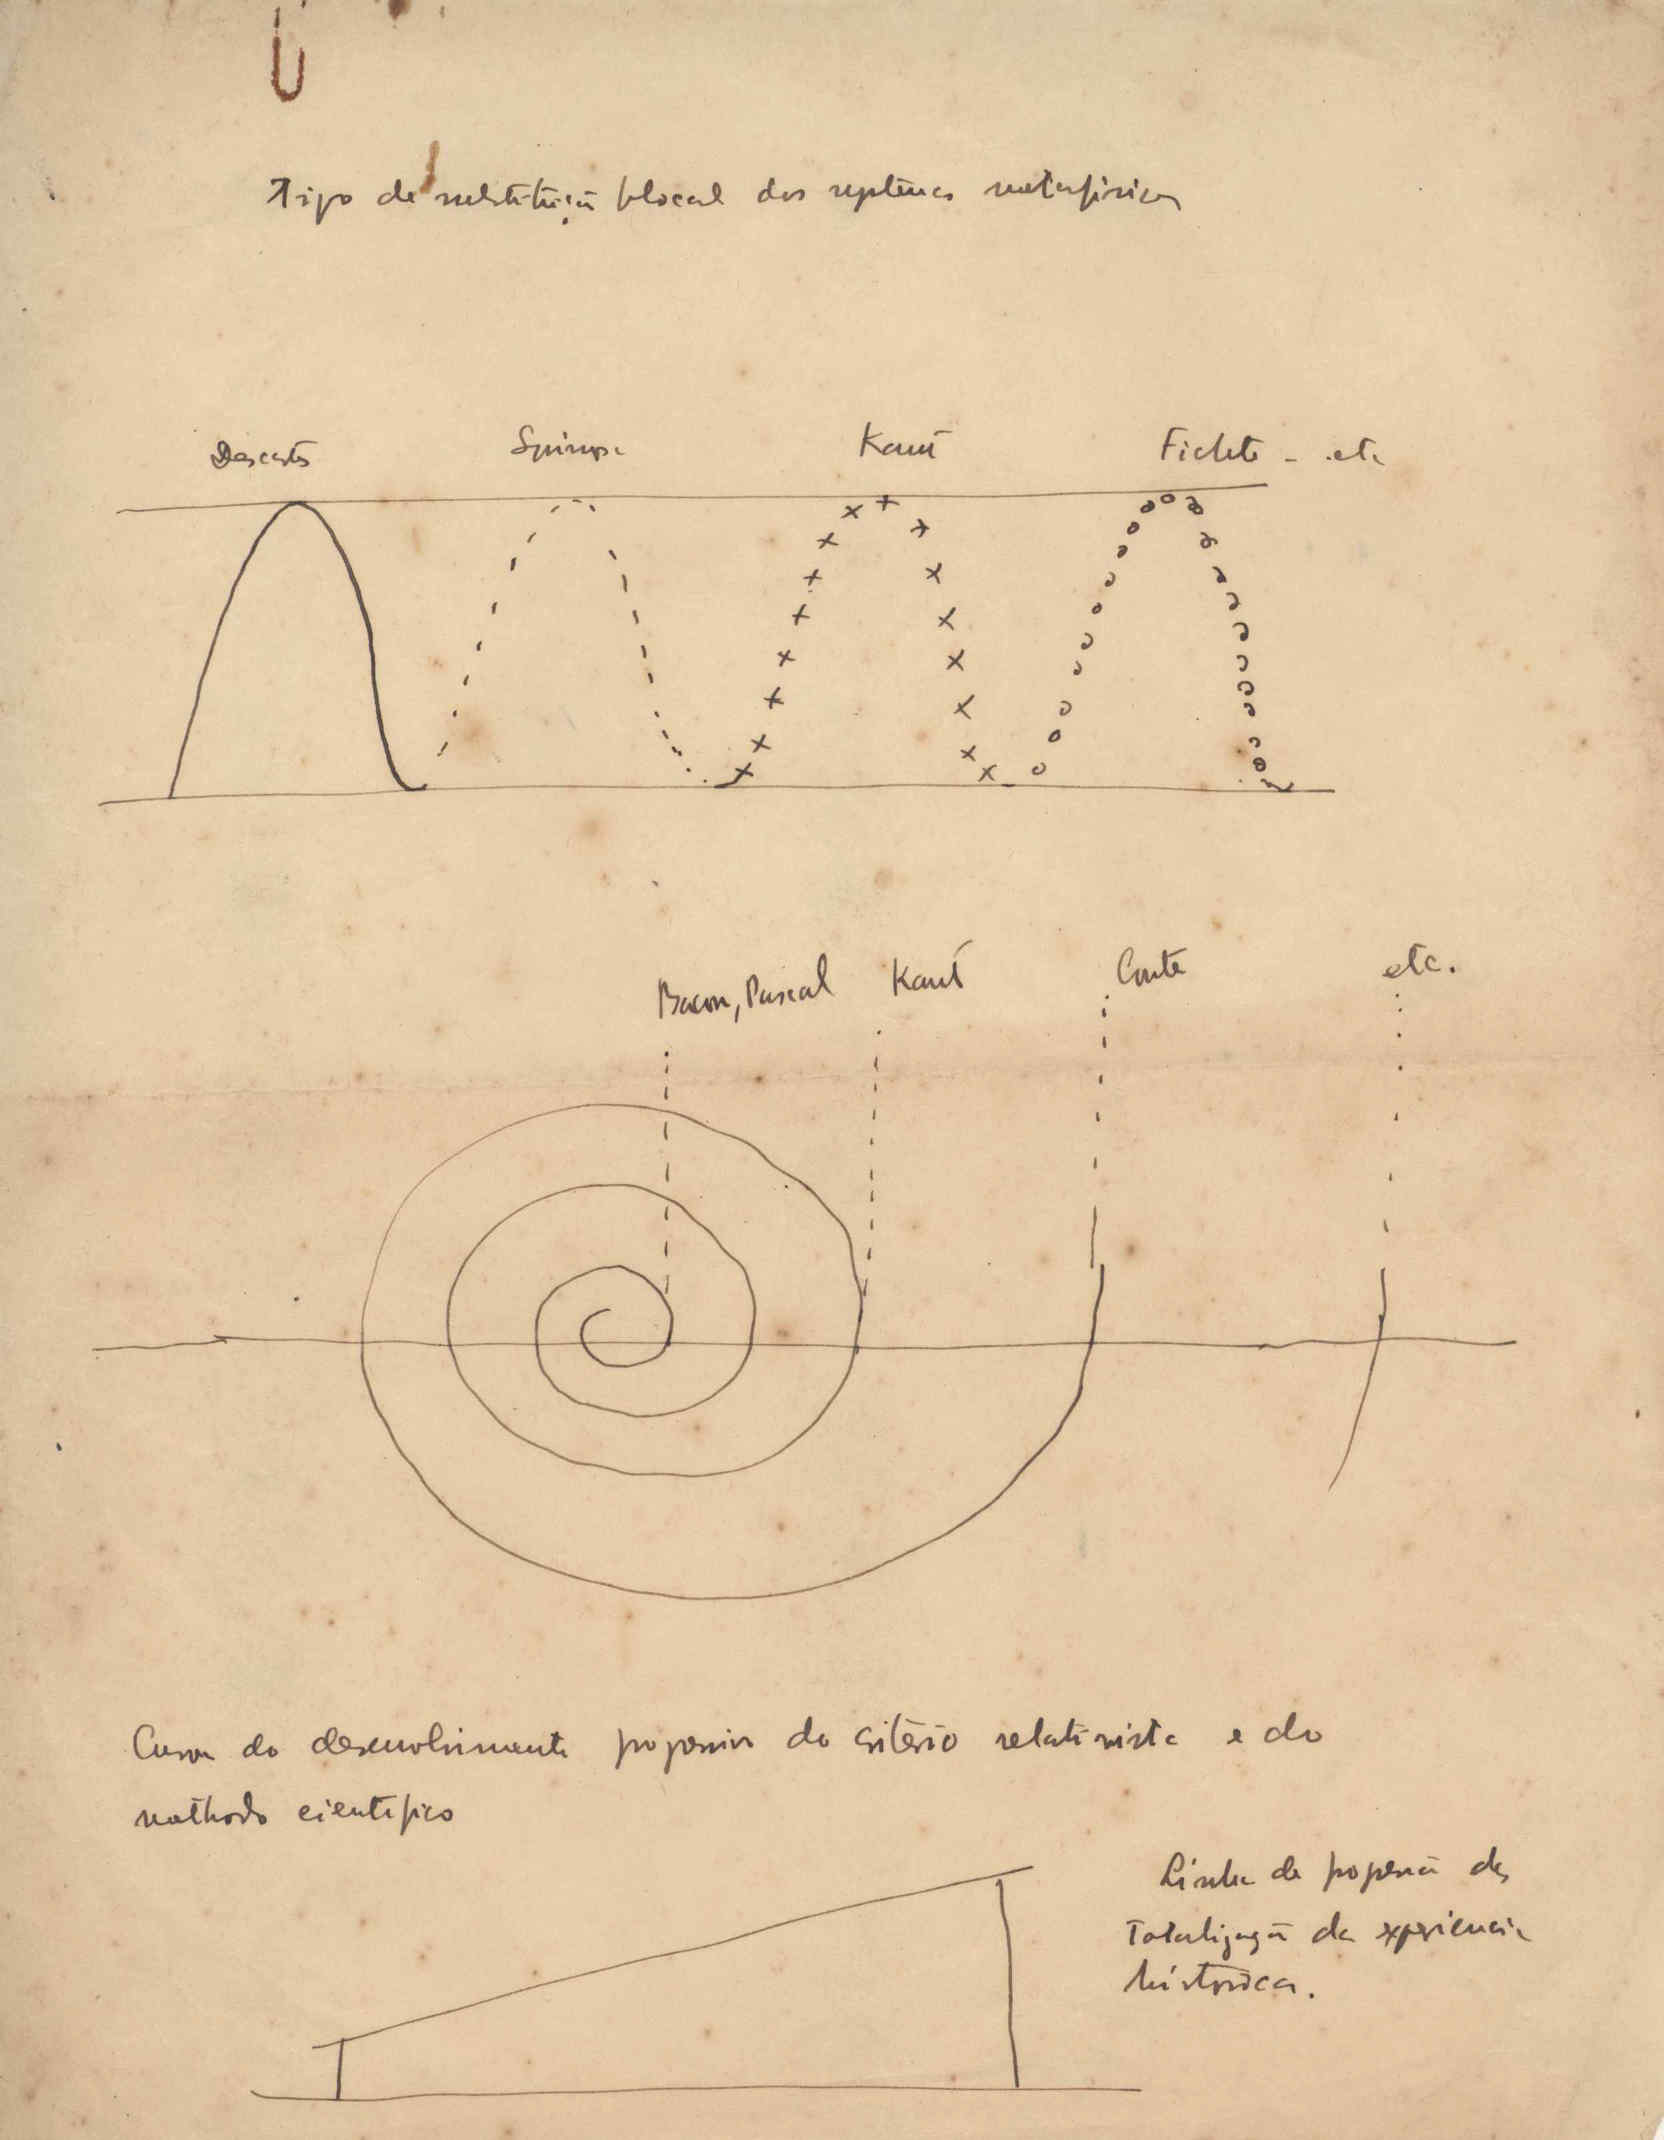 Tipo de substituição blocal dos systemas metaphisicos
Descartes Spinosa Kant Fichte - etc
Bacon, Pascal Kant Comte etc.
Curva do desenvolvimento progressivo do critério relativista e do
methodo cientifico
Linha de progressão da
Totalização da experiencia
historica.